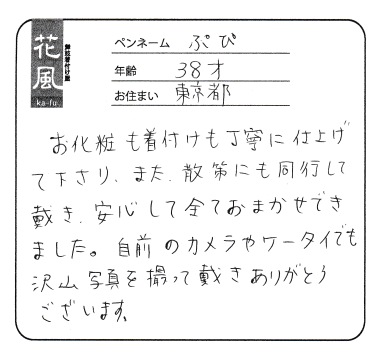 花風
舞妓着付け屋
ka-fu.
ペンネーム ぷぴ
年齢 38才
お住まい 東京都
お化粧も着付けも丁寧に仕上げ
て下さり、また、散策にも同行して
戴き、安心して全ておまかせでき
ました。自前のカメラやケータイでも
沢山写真を撮って戴きありがとう
ございます。